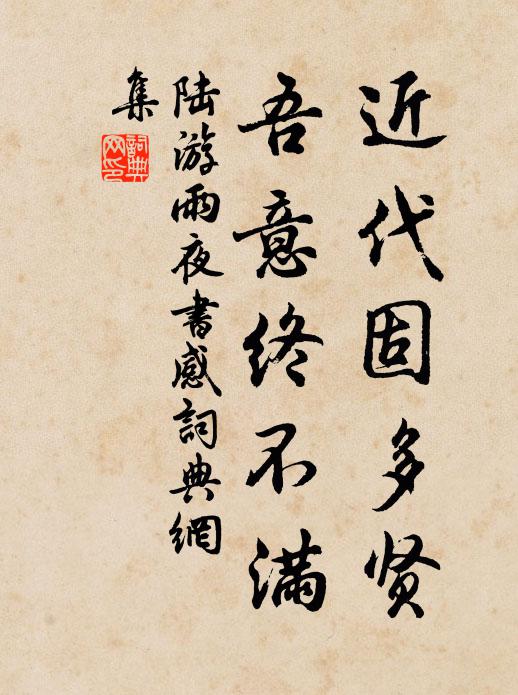 近代固多贤
吾意终不满
陆游雨夜書感詞典網
集
詞典网印